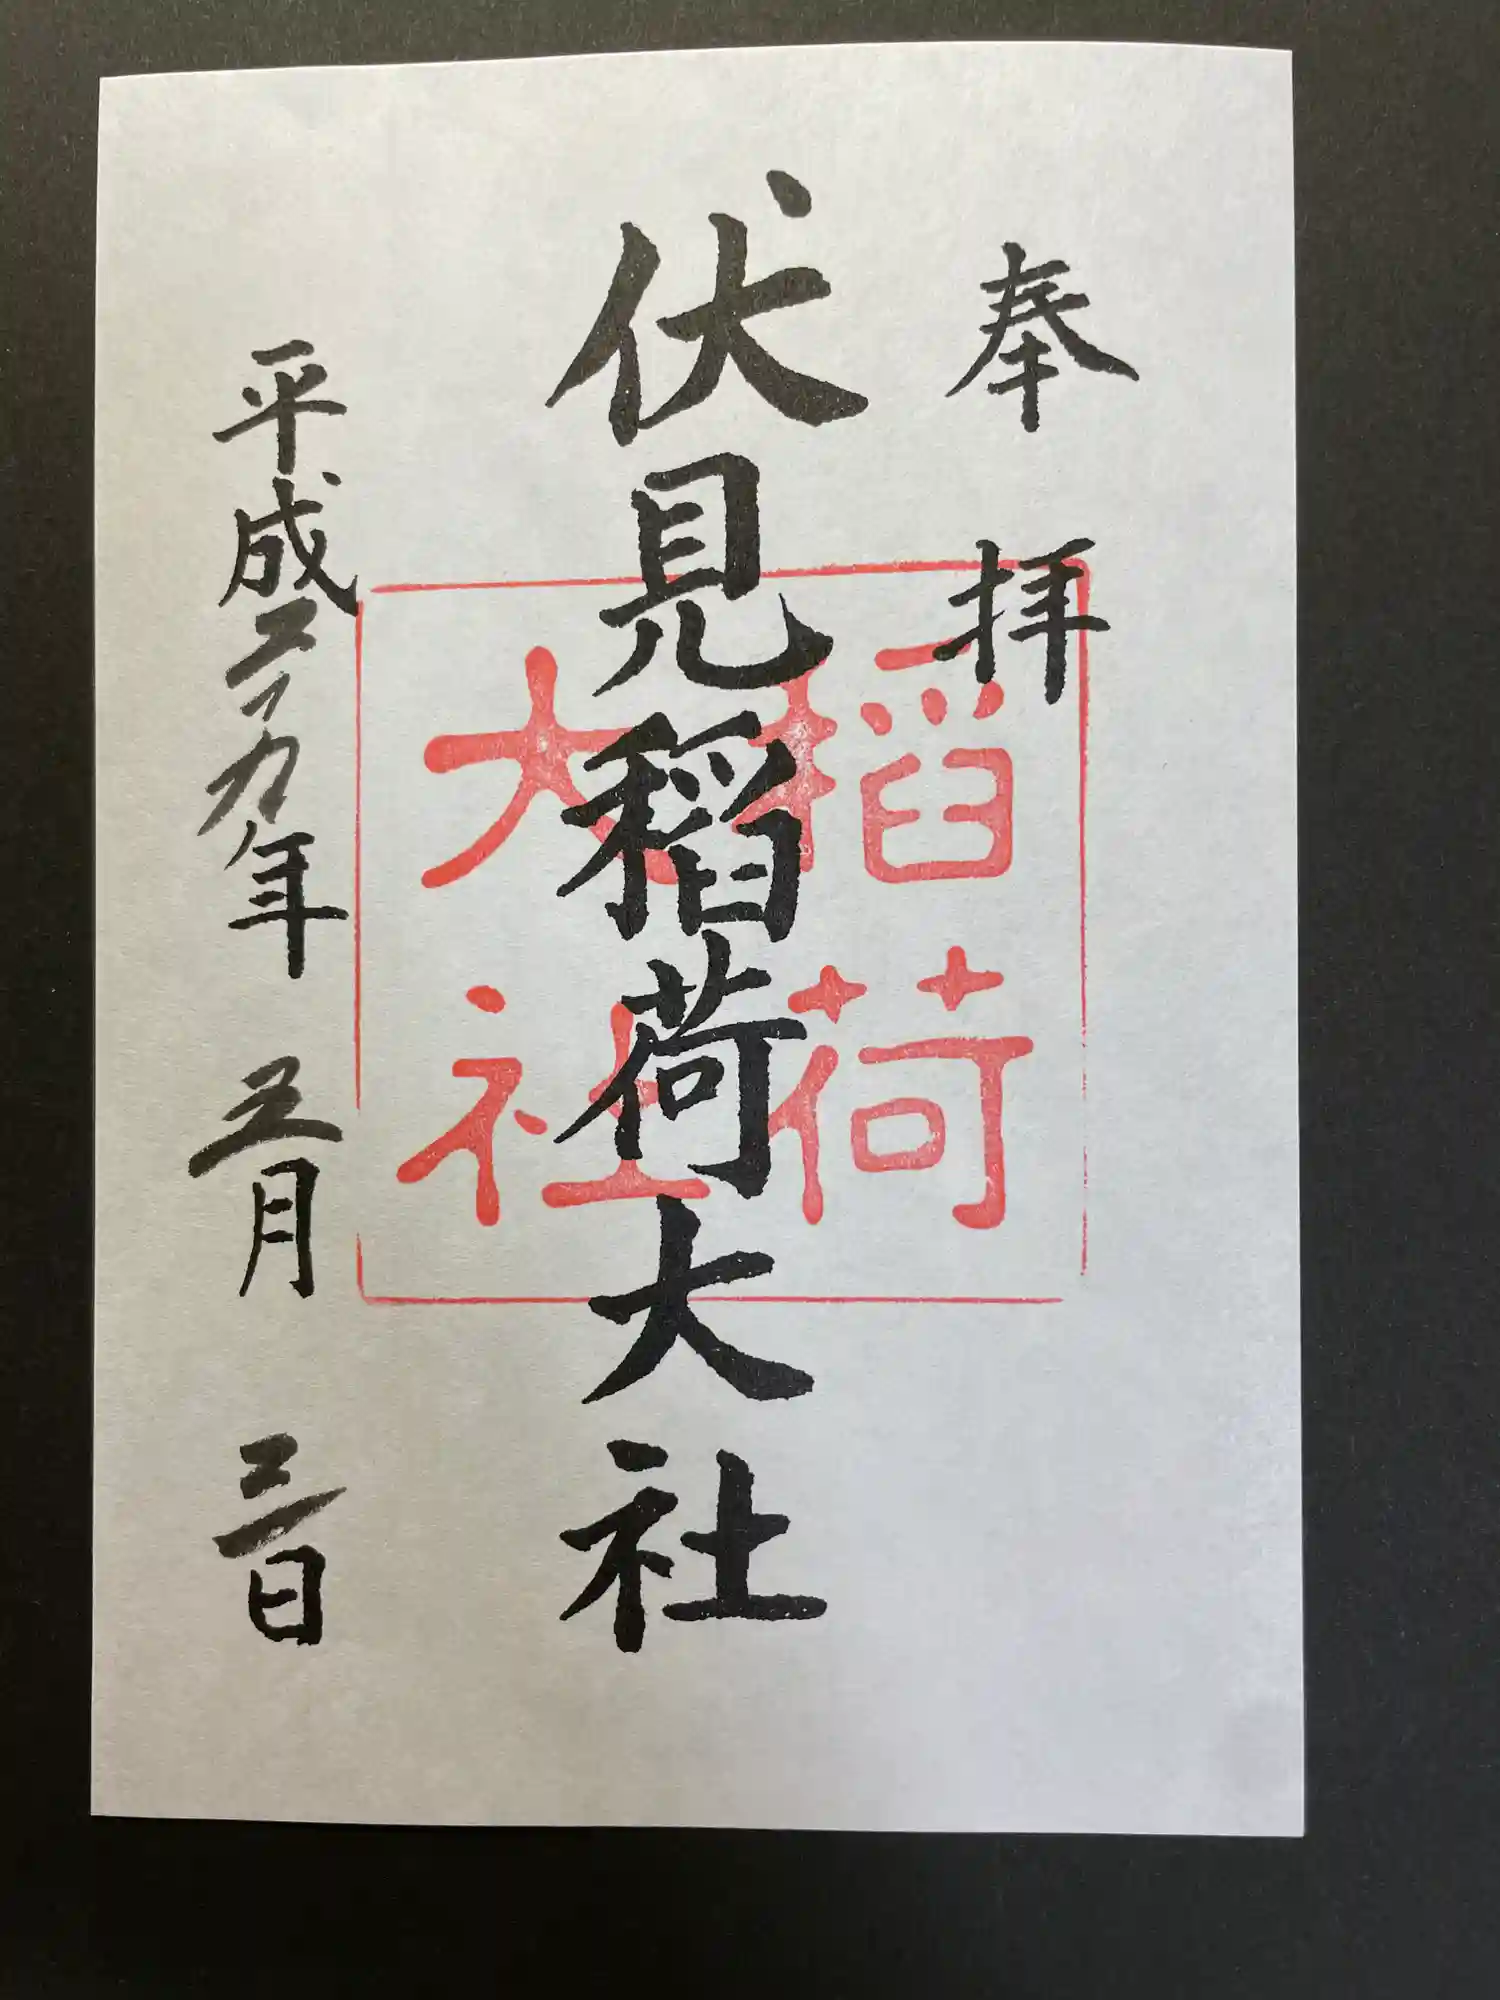 奉拝
伏見稲荷大社
稲荷
大社
平成二十九年五月三日